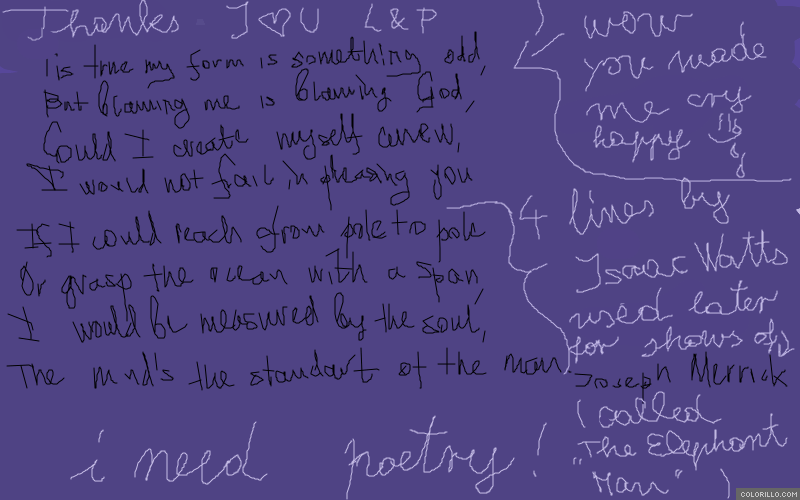 Thanks I ♡ U L & P
i is true my form is something odd,
But blaming me is blaming God,
Could I create myself anew,
I would not fail in pleasing you
If I could reach from pole to pole
Or grasp the ocean with a span,
I would be measured by the soul,
The mind's the standart of the man.
) wow
you made
me cry
happy
4 lines by
Isaac Watts
used later
for shows of
Joseph Merrick
( called
"The Elephant
Man" )
i need poetry!
COLORILLO.COM